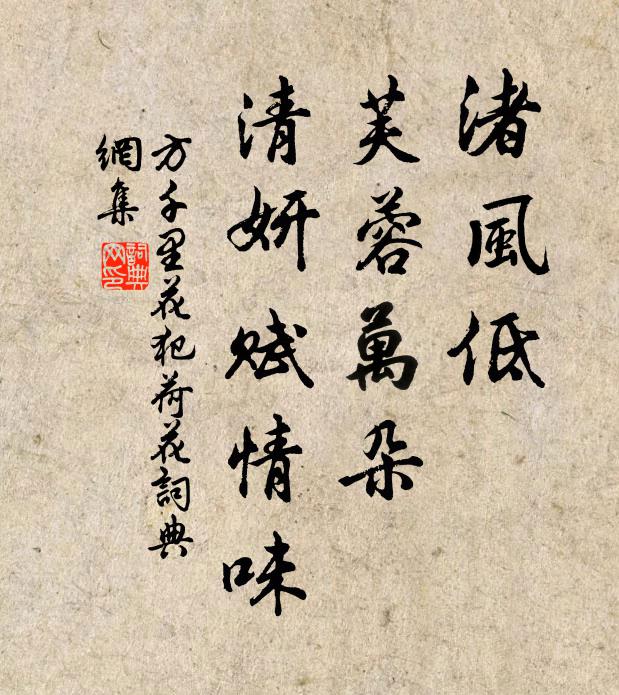 渚風低
芙蓉萬朵
清妍赋情味
方千里花犯荷花詞典
網集
詞典
网印